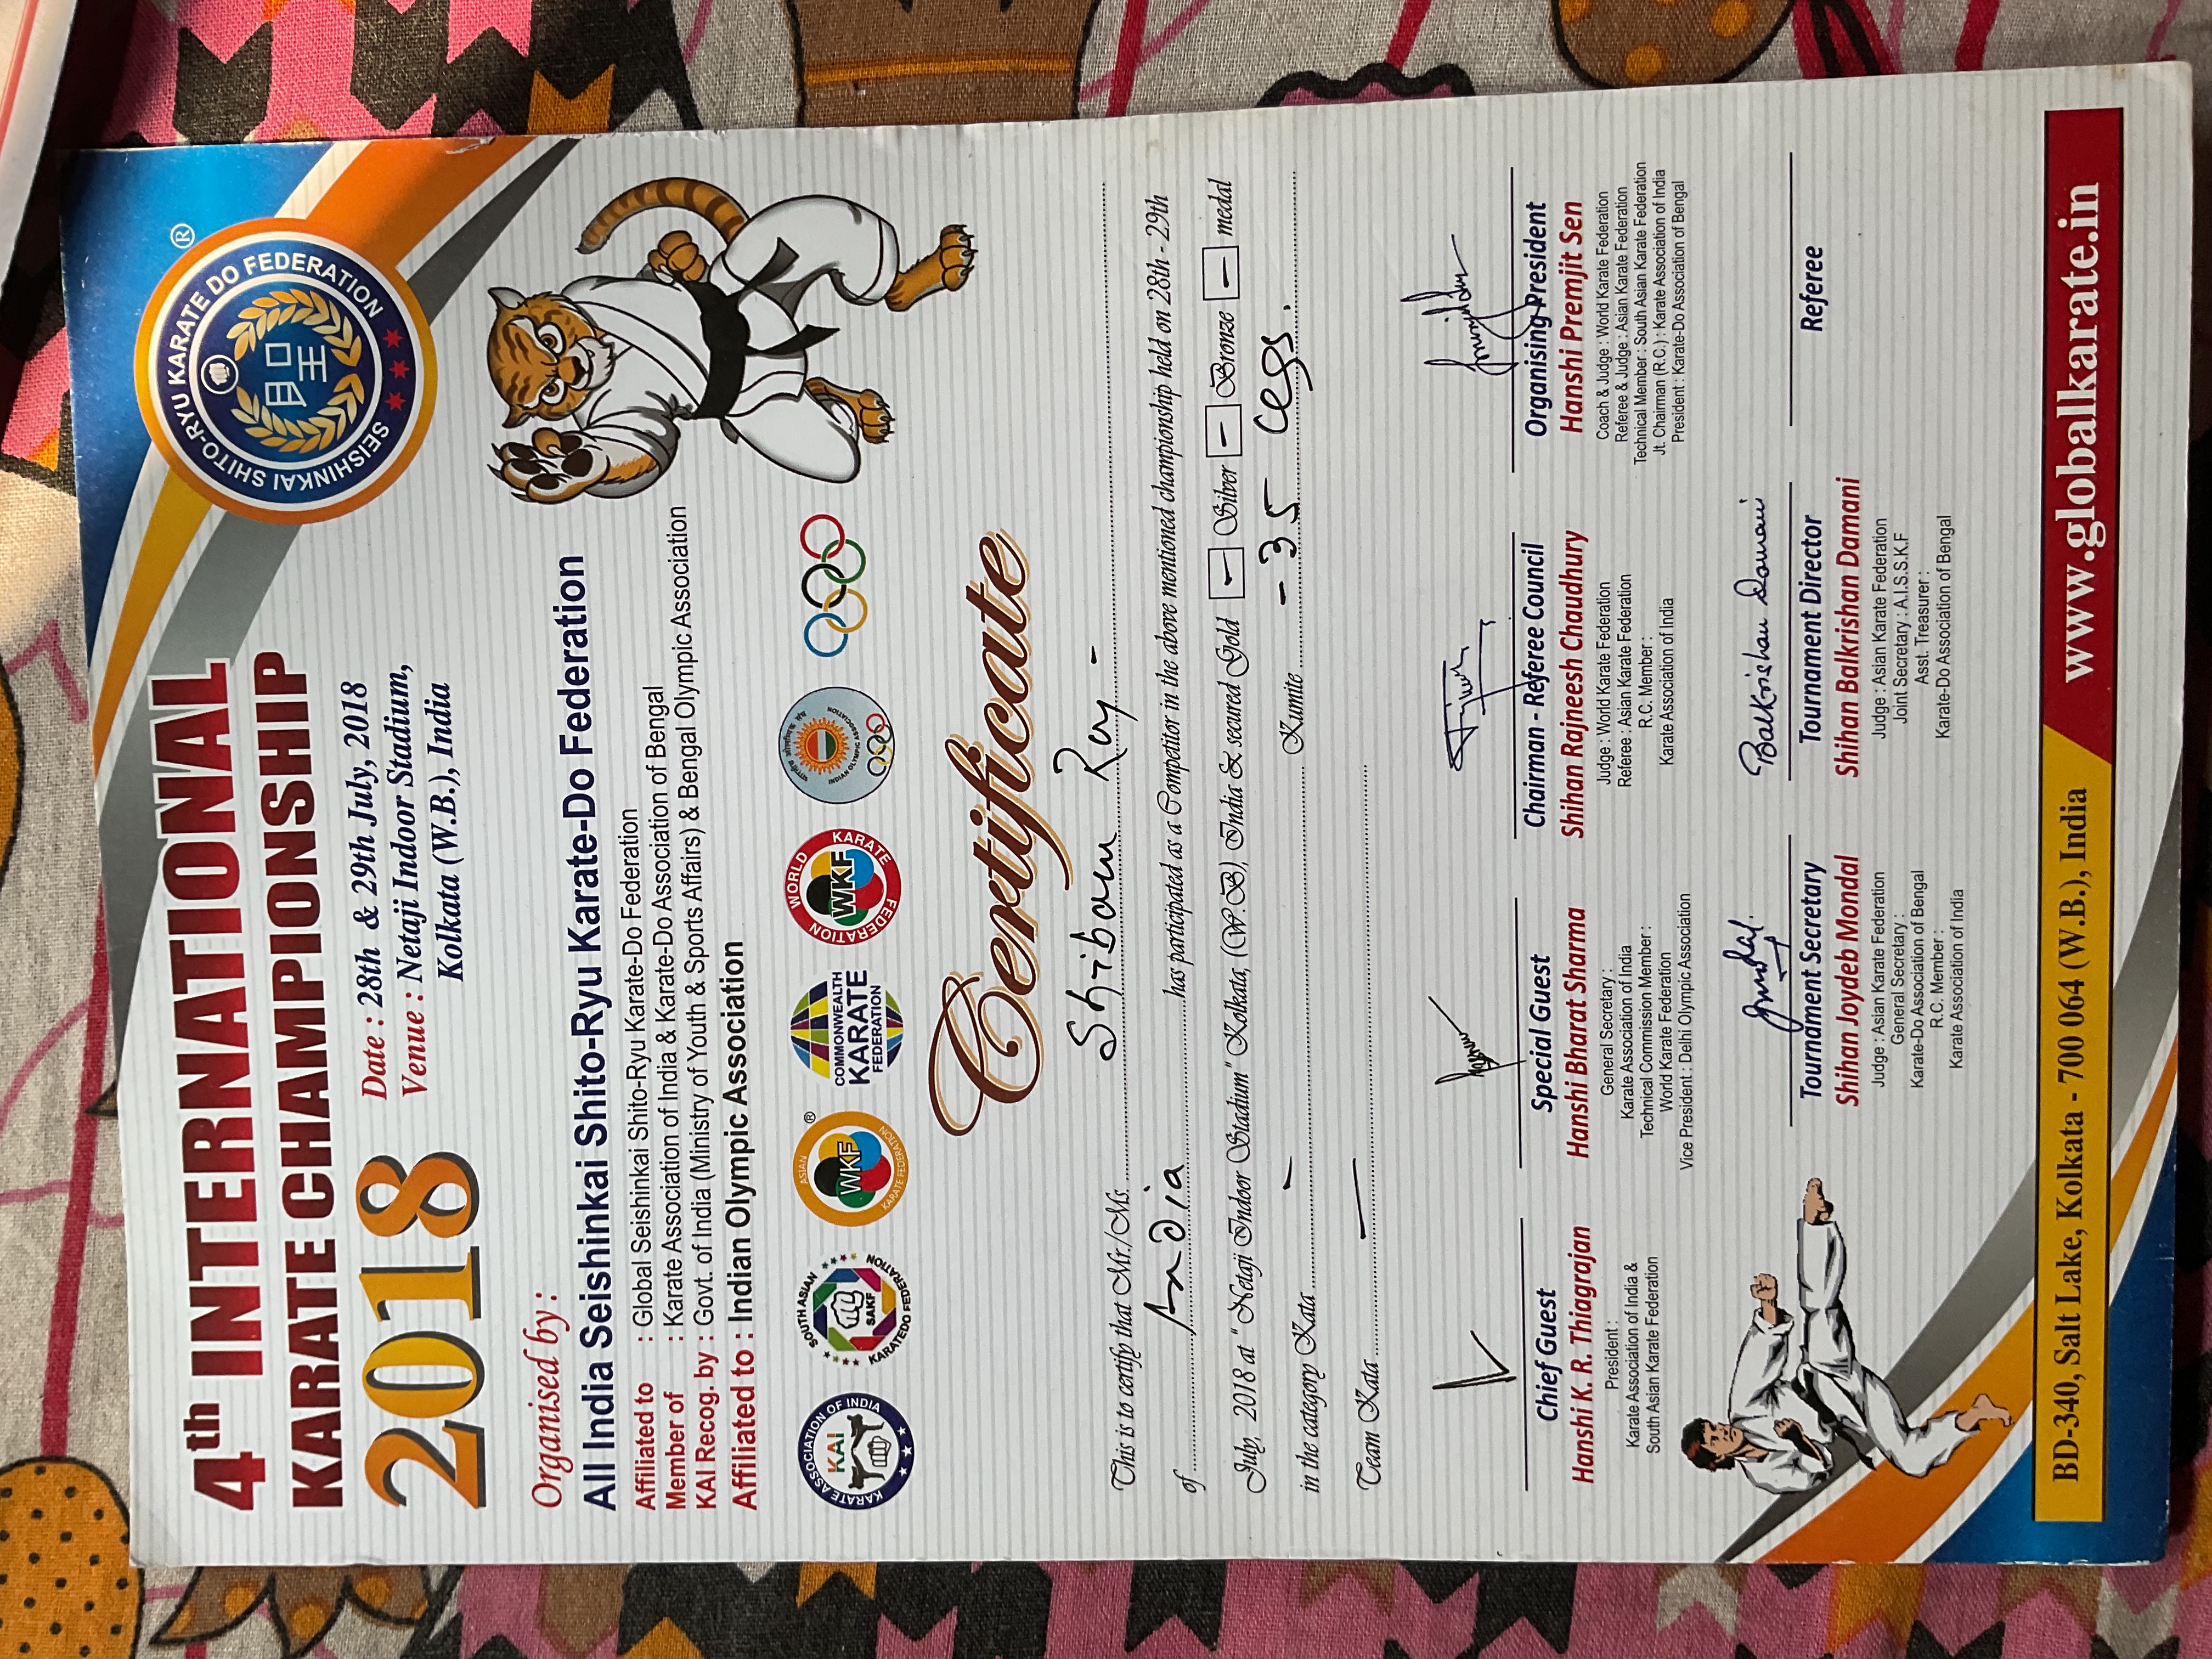 SEISHINKAI SHITO-RYU KARATE DO FEDERATION ®
4th INTERNATIONAL
KARATE CHAMPIONSHIP
2018
Date : 28th & 29th July, 2018
Venue : Netaji Indoor Stadium,
Kolkata (W.B.), India
Organised by :
All India Seishinkai Shito-Ryu Karate-Do Federation
Affiliated to : Global Seishinkai Shito-Ryu Karate-Do Federation
Member of : Karate Association of India & Karate-Do Association of Bengal
KAI Recog. by : Govt. of India (Ministry of Youth & Sports Affairs) & Bengal Olympic Association
Affiliated to : Indian Olympic Association
KARATE ASSOCIATION OF INDIA KAI
SOUTH ASIAN KARATEDO FEDERATION SAKF
ASIAN KARATE FEDERATION WKF ®
COMMONWEALTH KARATE FEDERATION
WORLD KARATE FEDERATION WKF
INDIAN OLYMPIC ASSOCIATION
Certificate
This is to certify that Mr./Ms. Shibam Roy -
of India has participated as a Competitor in the above mentioned championship held on 28th - 29th
July, 2018 at " Netaji Indoor Stadium" Kolkata, (W.B), India & secured Gold - Silver - Bronze - medal
in the category Kata - Kumite -35 Cegs.
Team Kata -
Chief Guest
Hanshi K. R. Thiagrajan
President :
Karate Association of India &
South Asian Karate Federation
Special Guest
Hanshi Bharat Sharma
General Secretary :
Karate Association of India
Technical Commission Member :
World Karate Federation
Vice President : Delhi Olympic Association
Chairman - Referee Council
Shihan Rajneesh Chaudhury
Judge : World Karate Federation
Referee : Asian Karate Federation
R.C. Member :
Karate Association of India
Organising President
Hanshi Premjit Sen
Coach & Judge : World Karate Federation
Referee & Judge : Asian Karate Federation
Technical Member : South Asian Karate Federation
Jt. Chairman (R.C.) : Karate Association of India
President : Karate-Do Association of Bengal
Tournament Secretary
Shihan Joydeb Mondal
Judge : Asian Karate Federation
General Secretary :
Karate-Do Association of Bengal
R.C. Member :
Karate Association of India
Balkrishan Damani
Tournament Director
Shihan Balkrishan Damani
Judge : Asian Karate Federation
Joint Secretary : A.I.S.S.K.F
Asst. Treasurer :
Karate-Do Association of Bengal
Referee
BD-340, Salt Lake, Kolkata - 700 064 (W.B.), India
www.globalkarate.in